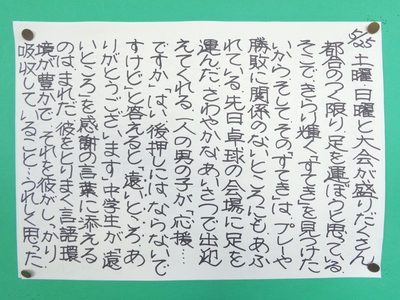 5/25
土曜日曜と大会が盛りだくさん
都合のつく限り、足を運ぼうと思っている。
そこできらり輝く「すてき」を見つけた
いから。そしてそのすてきは、プレーや
勝敗に関係のないところにもあふ
れている。先日卓球の会場に足を
運んだ。さわやかなあいさつで出れ
えてくれる。一人の男の子が「応援…
ですか」「はい、後押しにはならないで
すけど」と答えると、「遠いところ、あ
りがとうございます」中学生が「遠
いところ」を感謝の言葉に添える
のはまれだ。彼をとりまく言語環
境が豊かで、それを彼がしっかり
吸収していること…うれしく思った。